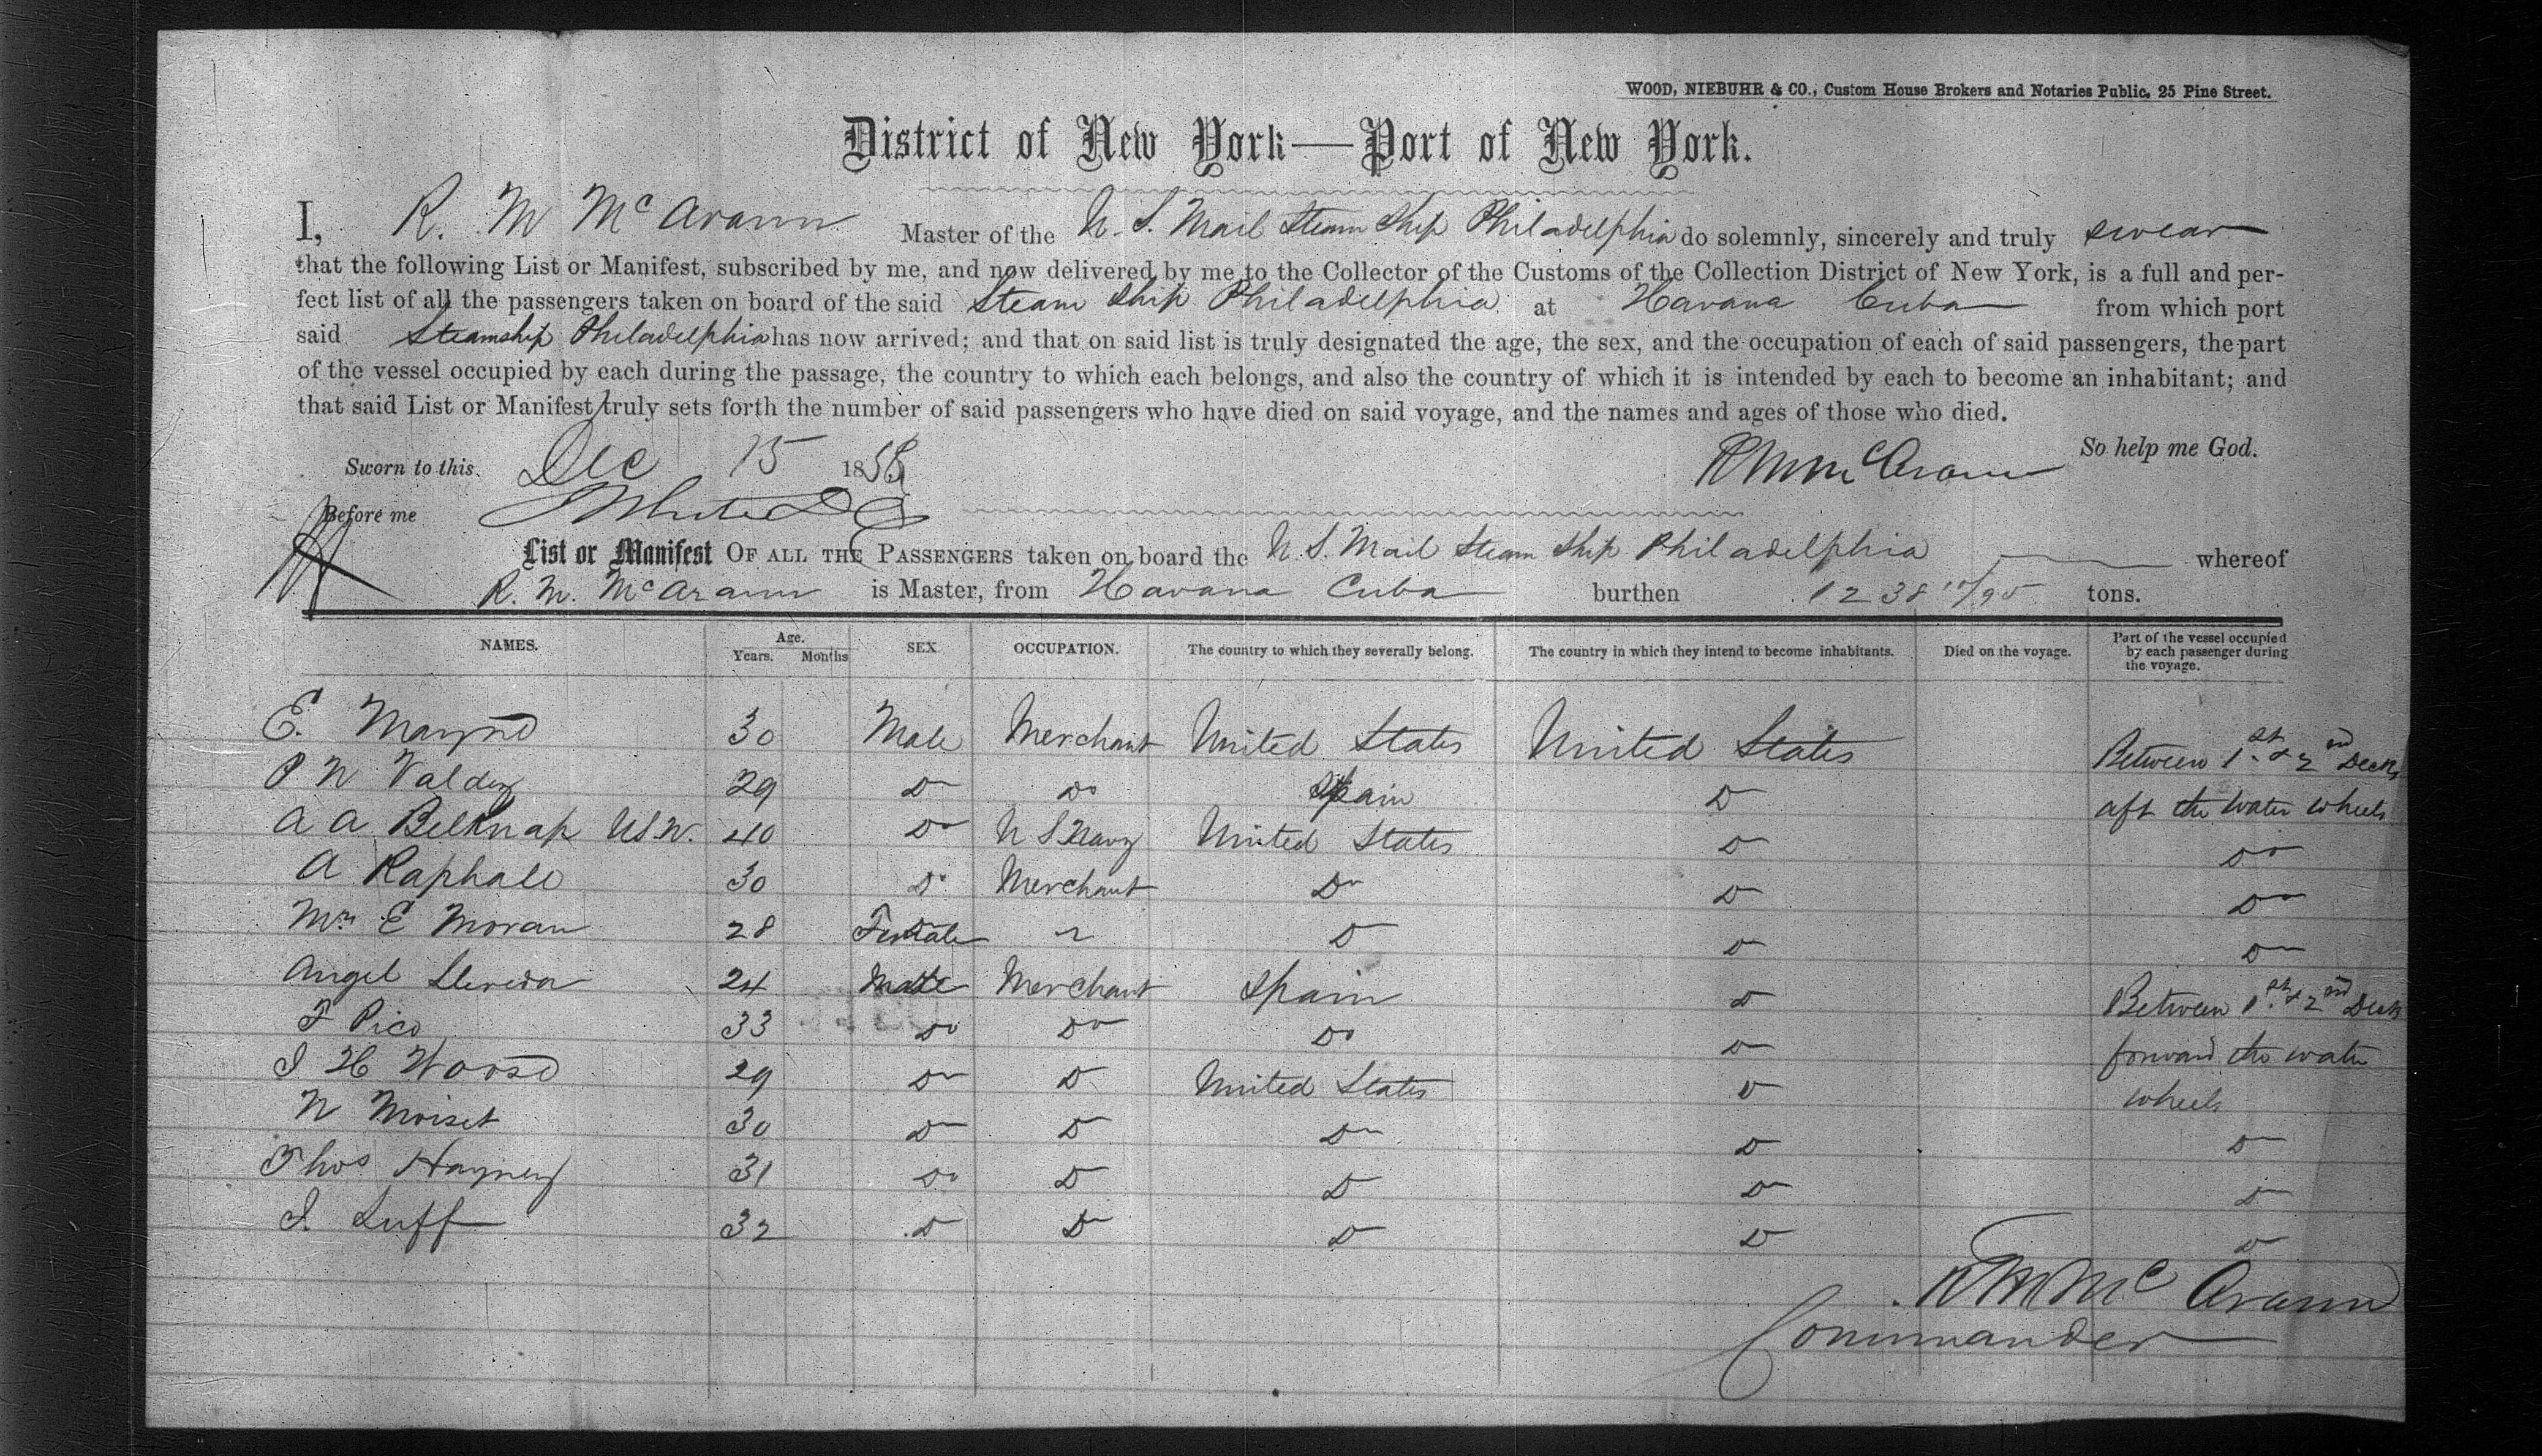 WOOD, NIEBUHR & CO., Custom House Brokers and Notaries Public, 25 Pine Street.
District of New York—Port of New York.
I, R. M McArann Master of the U. S. Mail Steam Ship Philadelphia do solemnly, sincerely and truly swear
that the following List or Manifest, subscribed by me, and now delivered by me to the Collector of the Customs of the Collection District of New York, is a full and per-
fect list of all the passengers taken on board of the said Steam Ship Philadelphia at Havana Cuba from which port
said Steamship Philadelphia has now arrived; and that on said list is truly designated the age, the sex, and the occupation of each of said passengers, the part
of the vessel occupied by each during the passage, the country to which each belongs, and also the country of which it is intended by each to become an inhabitant; and
that said List or Manifest truly sets forth the number of said passengers who have died on said voyage, and the names and ages of those who died.
So help me God.
Sworn to this Dec 15 1858 R M McArann
Before me
List or Manifest OF ALL THE PASSENGERS taken on board the U. S. Mail Steam Ship Philadelphia whereof
R. M. McArann is Master, from Havana Cuba burthen 1238 tons.
NAMES. Age. Years. Months SEX OCCUPATION. The country to which they severally belong. The country in which they intend to become inhabitants. Died on the voyage. Part of the vessel occupied by each passenger during the voyage.
E. Mayno 30 Male Merchant United States United States Between 1st & 2nd Decks
P N Valdez 29 Do Do Spain Do aft the water wheels
A A Belknap U.S.N. 40 Do U S Navy United States Do Do
A Raphall 30 Do Merchant Do Do Do
Mrs E Moran 28 Female Do Do Do
Angel 24 Male Merchant Spain Do Between 1st & 2nd Decks
F Pico 33 Do Do Do Do forward the water
J H Wood 29 Do Do United States Do wheels
N Moiset 30 Do Do Do Do Do
Thos Haynes 31 Do Do Do Do Do
J. Luff 32 Do Do Do Do Do
R M McArann
Commander